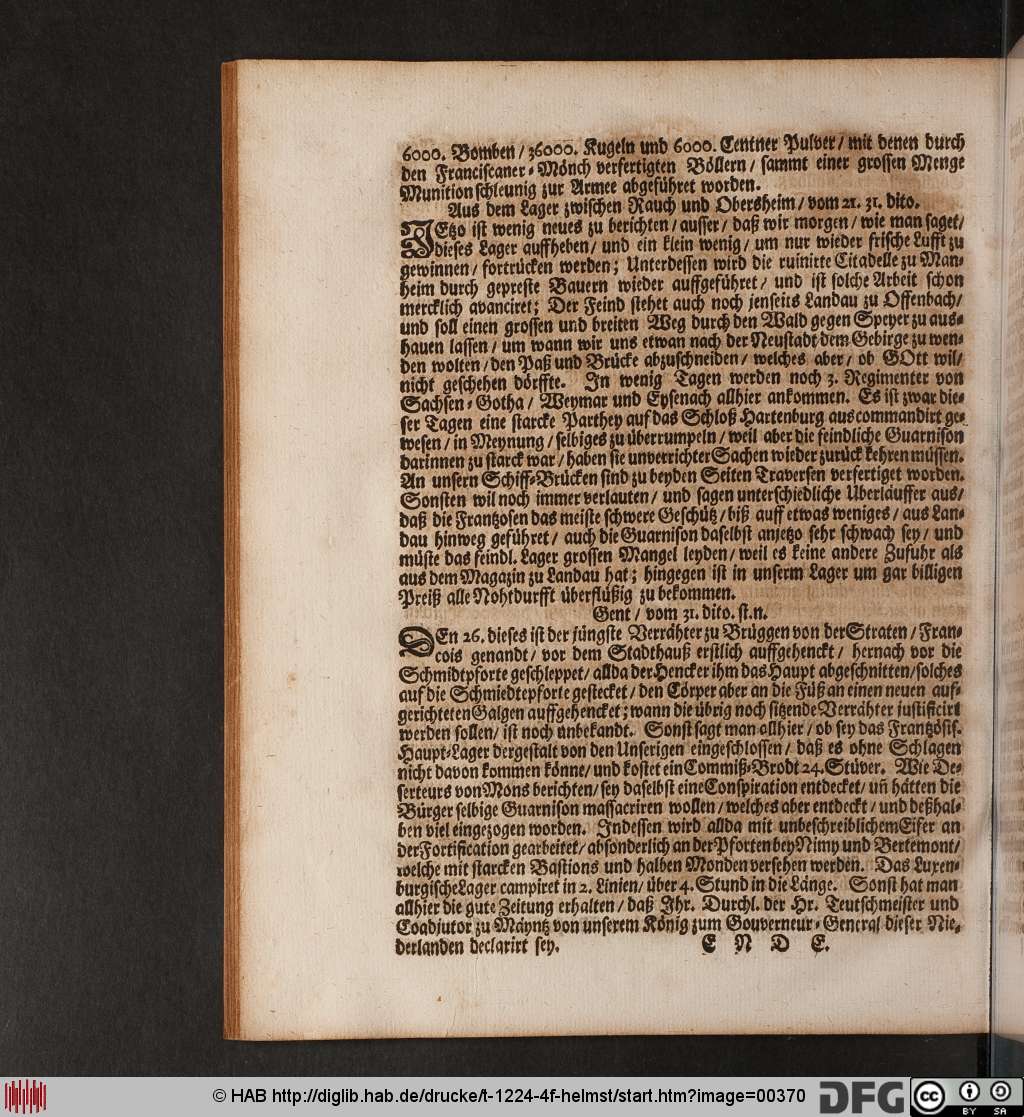 6000. Bomben / 36000. Kugeln und 6000. Centner Pulver / mit denen durch
den Franciscaner-Mönch verfertigten Böllern / sammt einer grossen Menge
Munition schleunig zur Armee abgeführet worden.
Aus dem Lager zwischen Rauch und Obersheim / vom 21. 31. dito.
JEtzo ist wenig neues zu berichten / ausser / daß wir morgen / wie man saget /
dieses Lager auffheben / und ein klein wenig / um nur wieder frische Lufft zu
gewinnen / fortrücken werden; Unterdessen wird die ruinirte Citadelle zu Man-
heim durch gepreste Bauern wieder auffgeführet / und ist solche Arbeit schon
mercklich avanciret; Der Feind stehet auch noch jenseits Landau zu Offenbach /
und soll einen grossen und breiten Weg durch den Wald gegen Speyer zu aus-
hauen lassen / um wann wir uns etwan nach der Neustadt dem Gebirge zu wen-
den wolten / den Paß und Brücke abzuschneiden / welches aber / ob GOtt wil /
nicht geschehen dörffte. In wenig Tagen werden noch 3. Regimenter von
Sachsen-Gotha / Weymar und Eysenach allhier ankommen. Es ist zwar die-
ser Tagen eine starcke Parthey auf das Schloß Hartenburg auscommandirt ge-
wesen / in Meynung / selbiges zu überrumpeln / weil aber die feindliche Guarnison
darinnen zu starck war / haben sie unverrichter Sachen wieder zurück kehren müssen.
An unsern Schiff-Brücken sind zu beyden Seiten Traversen verfertiget worden.
Sonsten wil noch immer verlauten / und sagen unterschiedliche Uberläuffer aus /
daß die Frantzosen das meiste schwere Geschütz / biß auff etwas weniges / aus Lan-
dau hinweg geführet / auch die Guarnison daselbst anjetzo sehr schwach sey / und
müste das feindl. Lager grossen Mangel leyden / weil es keine andere Zufuhr als
aus dem Magazin zu Landau hat; hingegen ist in unserm Lager um gar billigen
Preiß alle Nohtdurfft überflüßig zu bekommen.
Gent / vom 31. dito. st. n.
DEn 26. dieses ist der jüngste Verrähter zu Brüggen von der Straten / Fran-
cois genandt / vor dem Stadthauß erstlich auffgehenckt / hernach vor die
Schmidtpforte geschleppet / allda der Hencker ihm das Haupt abgeschnitten / solches
auf die Schmiedtepforte gestecket / den Cörper aber an die Füß an einen neuen auf-
gerichteten Galgen auffgehencket; wann die übrig noch sitzende Verrähter justificirt
werden sollen / ist noch unbekandt. Sonst sagt man allhier / ob sey das Frantzösis.
Haupt-Lager dergestalt von den Unserigen eingeschlossen / daß es ohne Schlagen
nicht davon kommen könne / und kostet ein Commiß-Brodt 24. Stüver. Wie De-
serteurs von Mons berichten / sey daselbst eine Conspiration entdecket / uñ hätten die
Bürger selbige Guarnison massacriren wollen / welches aber entdeckt / und deßhal-
ben viel eingezogen worden. Indessen wird allda mit unbeschreiblichem Eifer an
der Fortification gearbeitet / absonderlich an der Pforten bey Nimy und Bertemont /
welche mit starcken Bastions und halben Monden versehen werden. Das Luxen-
burgische Lager campiret in 2. Linien / über 4. Stund in die Länge. Sonst hat man
allhier die gute Zeitung erhalten / daß Ihr. Durchl. der Hr. Teutschmeister und
Coadjutor zu Mäyntz von unserem König zum Gouverneur-General dieser Nie-
derlanden declarirt sey. E N D E.
© HAB http://diglib.hab.de/drucke/t-1224-4f-helmst/start.htm?image=00370
DFG
cc BY SA